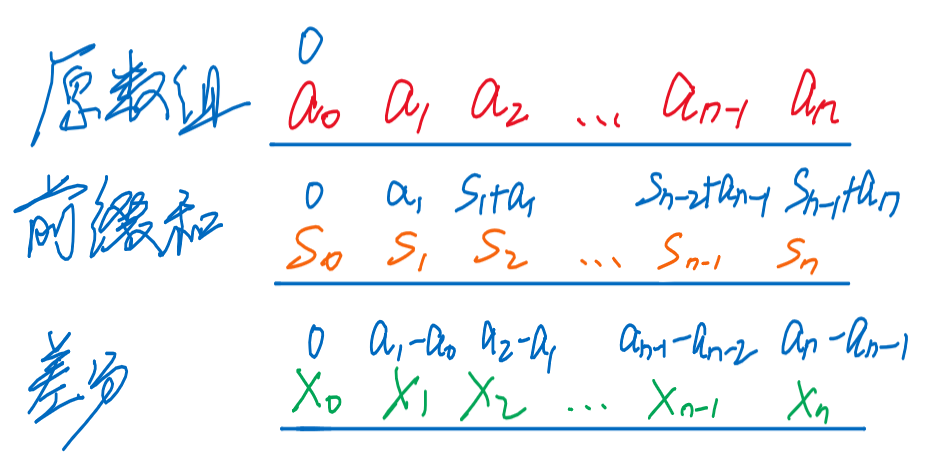 0
原数组 a₀ a₁ a₂ ... aₙ₋₁ aₙ
0 a₁ S₁+a₁ Sₙ₋₂+aₙ₋₁ Sₙ₋₁+aₙ
前缀和 S₀ S₁ S₂ ... Sₙ₋₁ Sₙ
0 a₁-a₀ a₂-a₁ aₙ₋₁-aₙ₋₂ aₙ-aₙ₋₁
差分 X₀ X₁ X₂ ... Xₙ₋₁ Xₙ